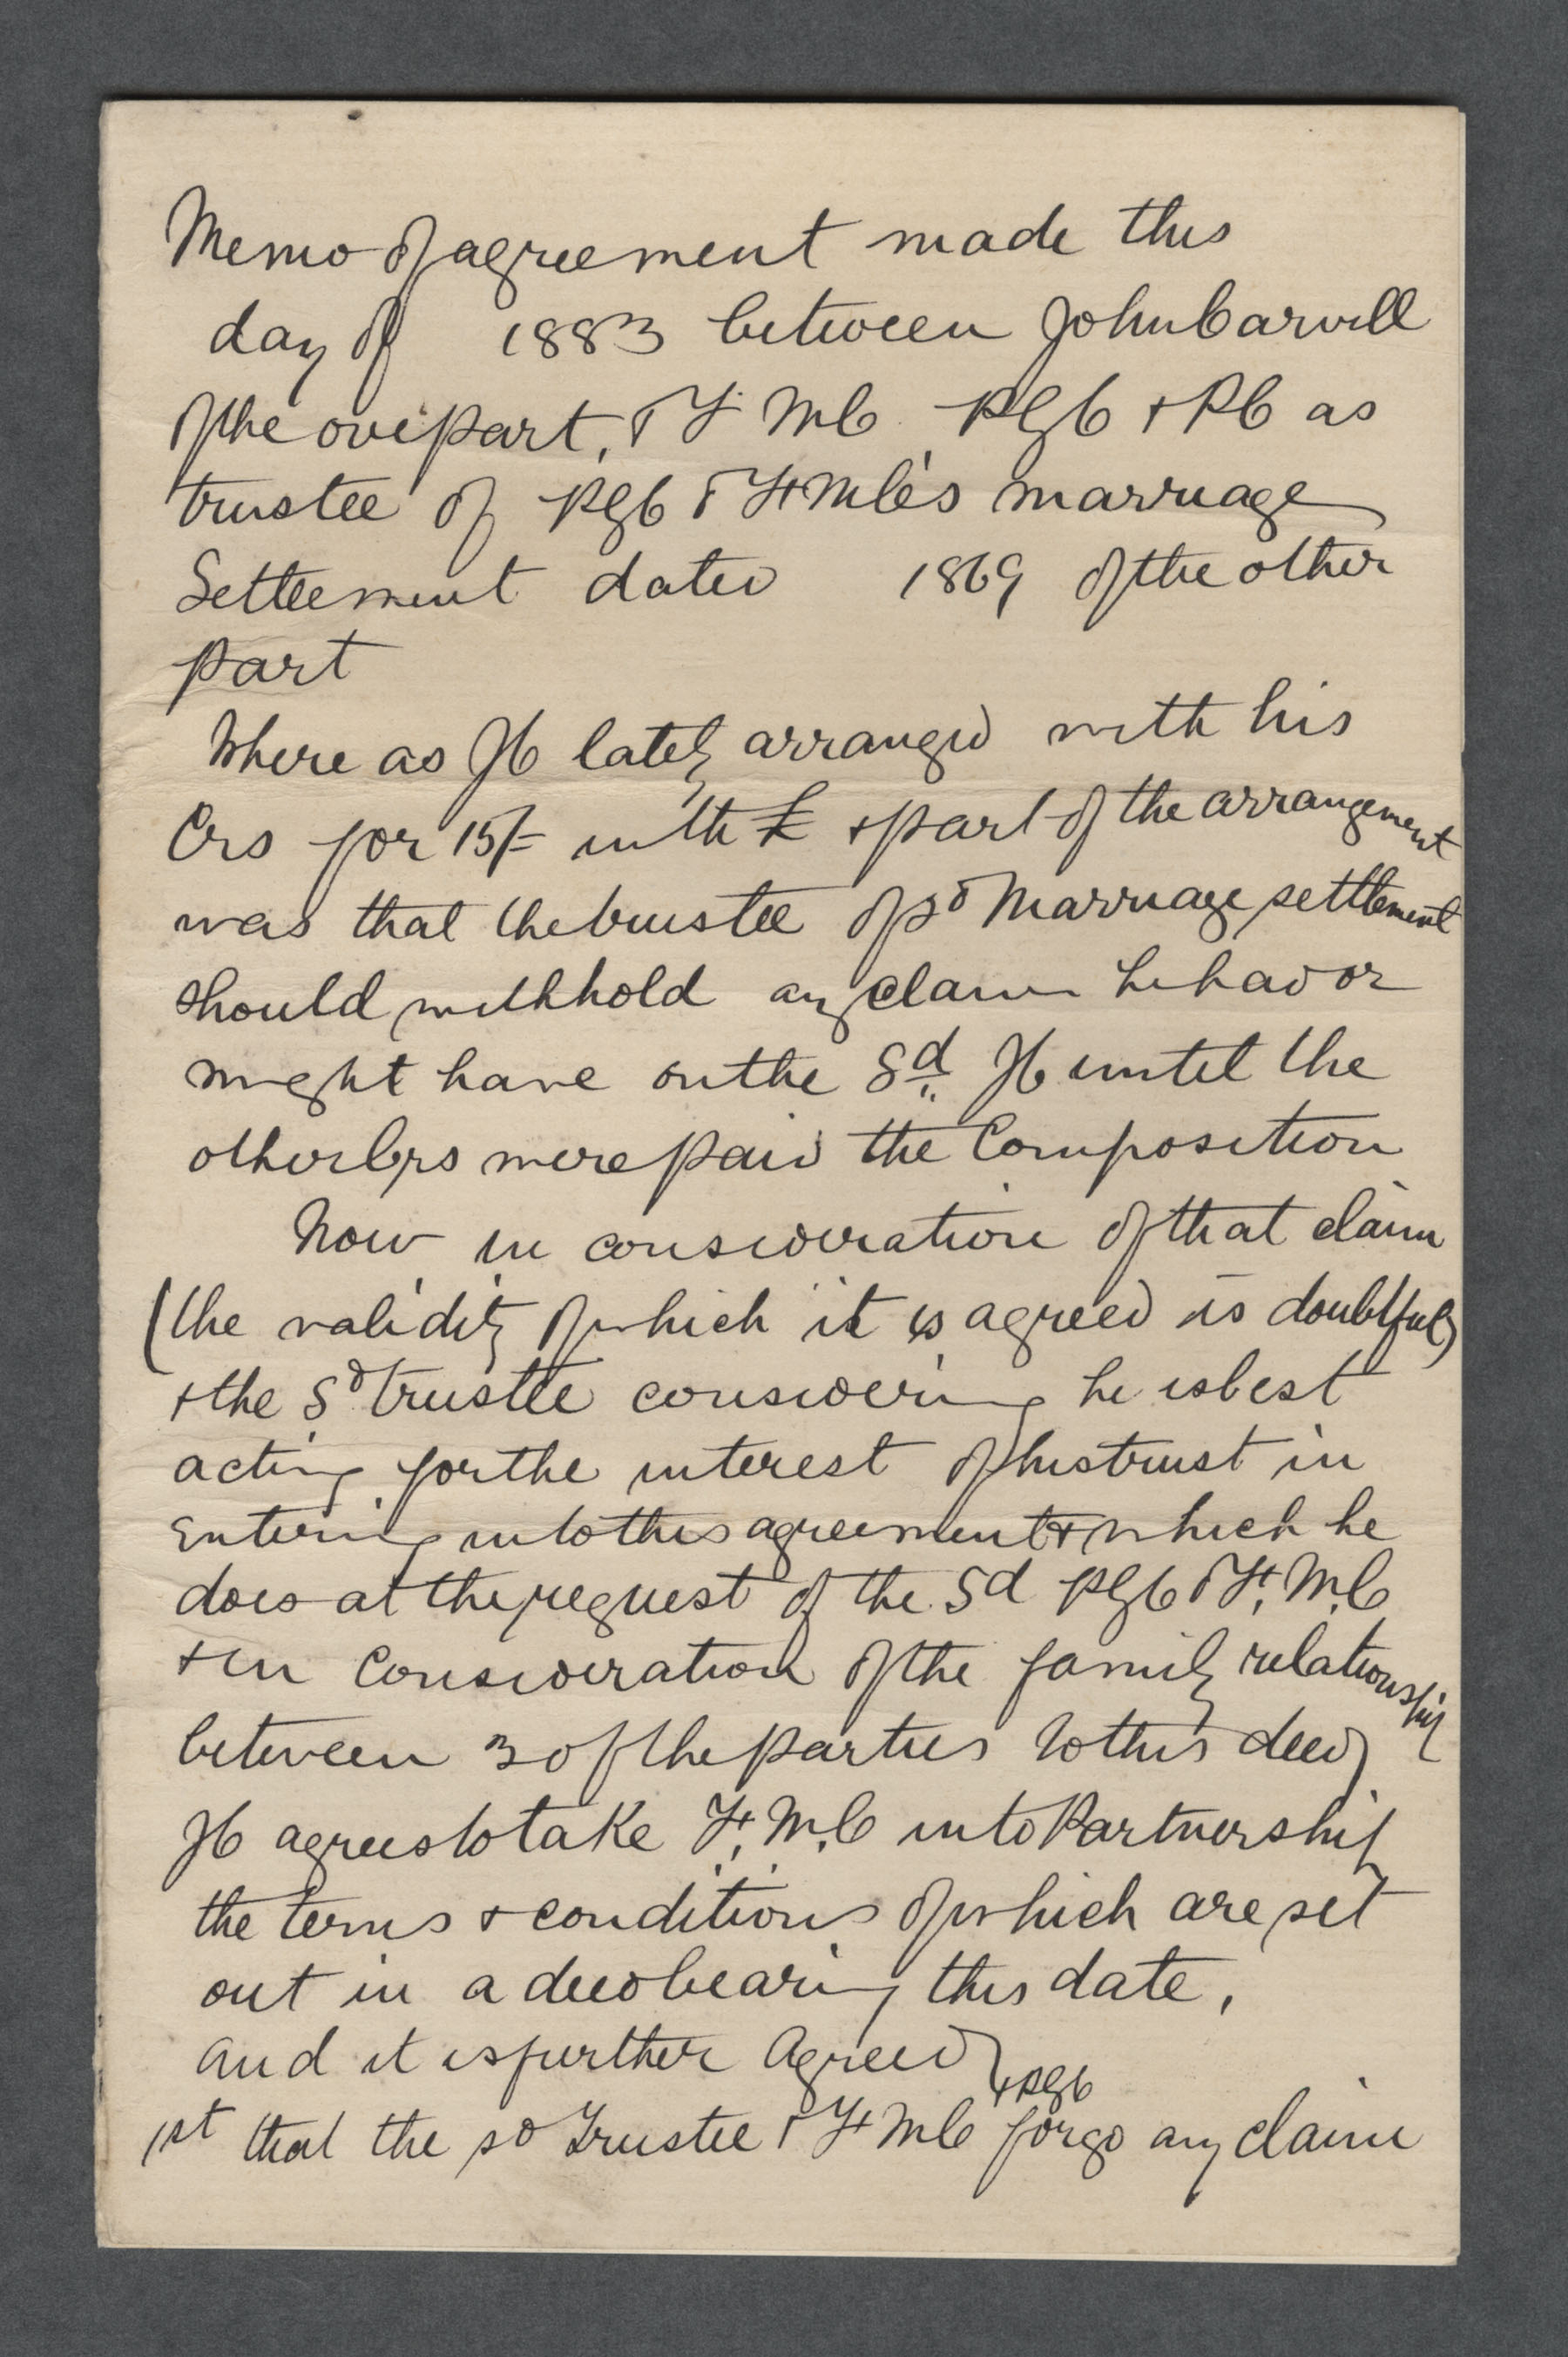 Memo of agreement made this
day of 1883 between John Carvill
of the one part, & F McC RGC + RC as
trustee of RGC & F McC's marriage
Settlement dated 1869 of the other
part
Where as JC lately arranged with his
Crs for 15/= in the £ + part of the arrangement
was that the trustee of sd Marriage settlement
should withhold any claim he had or
might have on the Sd JC until the
other Crs were paid the Composition
Now in consideration of that claim
(the validity of which it is agreed is doubtful)
+ the Sd trustee considering he is best
acting for the interest of his trust in
Entering into this agreement + which he
does at the request of the Sd RGC & F. McC
+ in Consideration of the family relationship
between 3 of the parties to this deed
JC agrees to take F. McC into Partnership
the terms + conditions of which are set
out in a deed bearing this date,
and it is further Agreed
+ RGC
1st that the sd Trustee & F McC forgo any claim